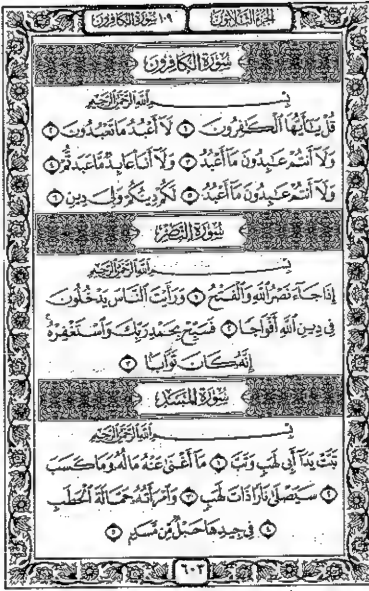 الجزء الثلاثون ١٠٩ سورة الكافرون
سورة الكافرون
بسم الله الرحمن الرحيم
قُلْ يَٰٓأَيُّهَا ٱلْكَٰفِرُونَ ١ لَآ أَعْبُدُ مَا تَعْبُدُونَ ٢
وَلَآ أَنتُمْ عَٰبِدُونَ مَآ أَعْبُدُ ٣ وَلَآ أَنَا۠ عَابِدٌ مَّا عَبَدتُّمْ ٤
وَلَآ أَنتُمْ عَٰبِدُونَ مَآ أَعْبُدُ ٥ لَكُمْ دِينُكُمْ وَلِىَ دِينِ ٦
سورة النصر
بسم الله الرحمن الرحيم
إِذَا جَآءَ نَصْرُ ٱللَّهِ وَٱلْفَتْحُ ١ وَرَأَيْتَ ٱلنَّاسَ يَدْخُلُونَ
فِى دِينِ ٱللَّهِ أَفْوَاجًا ٢ فَسَبِّحْ بِحَمْدِ رَبِّكَ وَٱسْتَغْفِرْهُ
إِنَّهُۥ كَانَ تَوَّابًۢا ٣
سورة المسد
بسم الله الرحمن الرحيم
تَبَّتْ يَدَآ أَبِى لَهَبٍ وَتَبَّ ١ مَآ أَغْنَىٰ عَنْهُ مَالُهُۥ وَمَا كَسَبَ
٢ سَيَصْلَىٰ نَارًا ذَاتَ لَهَبٍ ٣ وَٱمْرَأَتُهُۥ حَمَّالَةَ ٱلْحَطَبِ
٤ فِى جِيدِهَا حَبْلٌ مِّن مَّسَدٍۭ ٥
٦٠٣